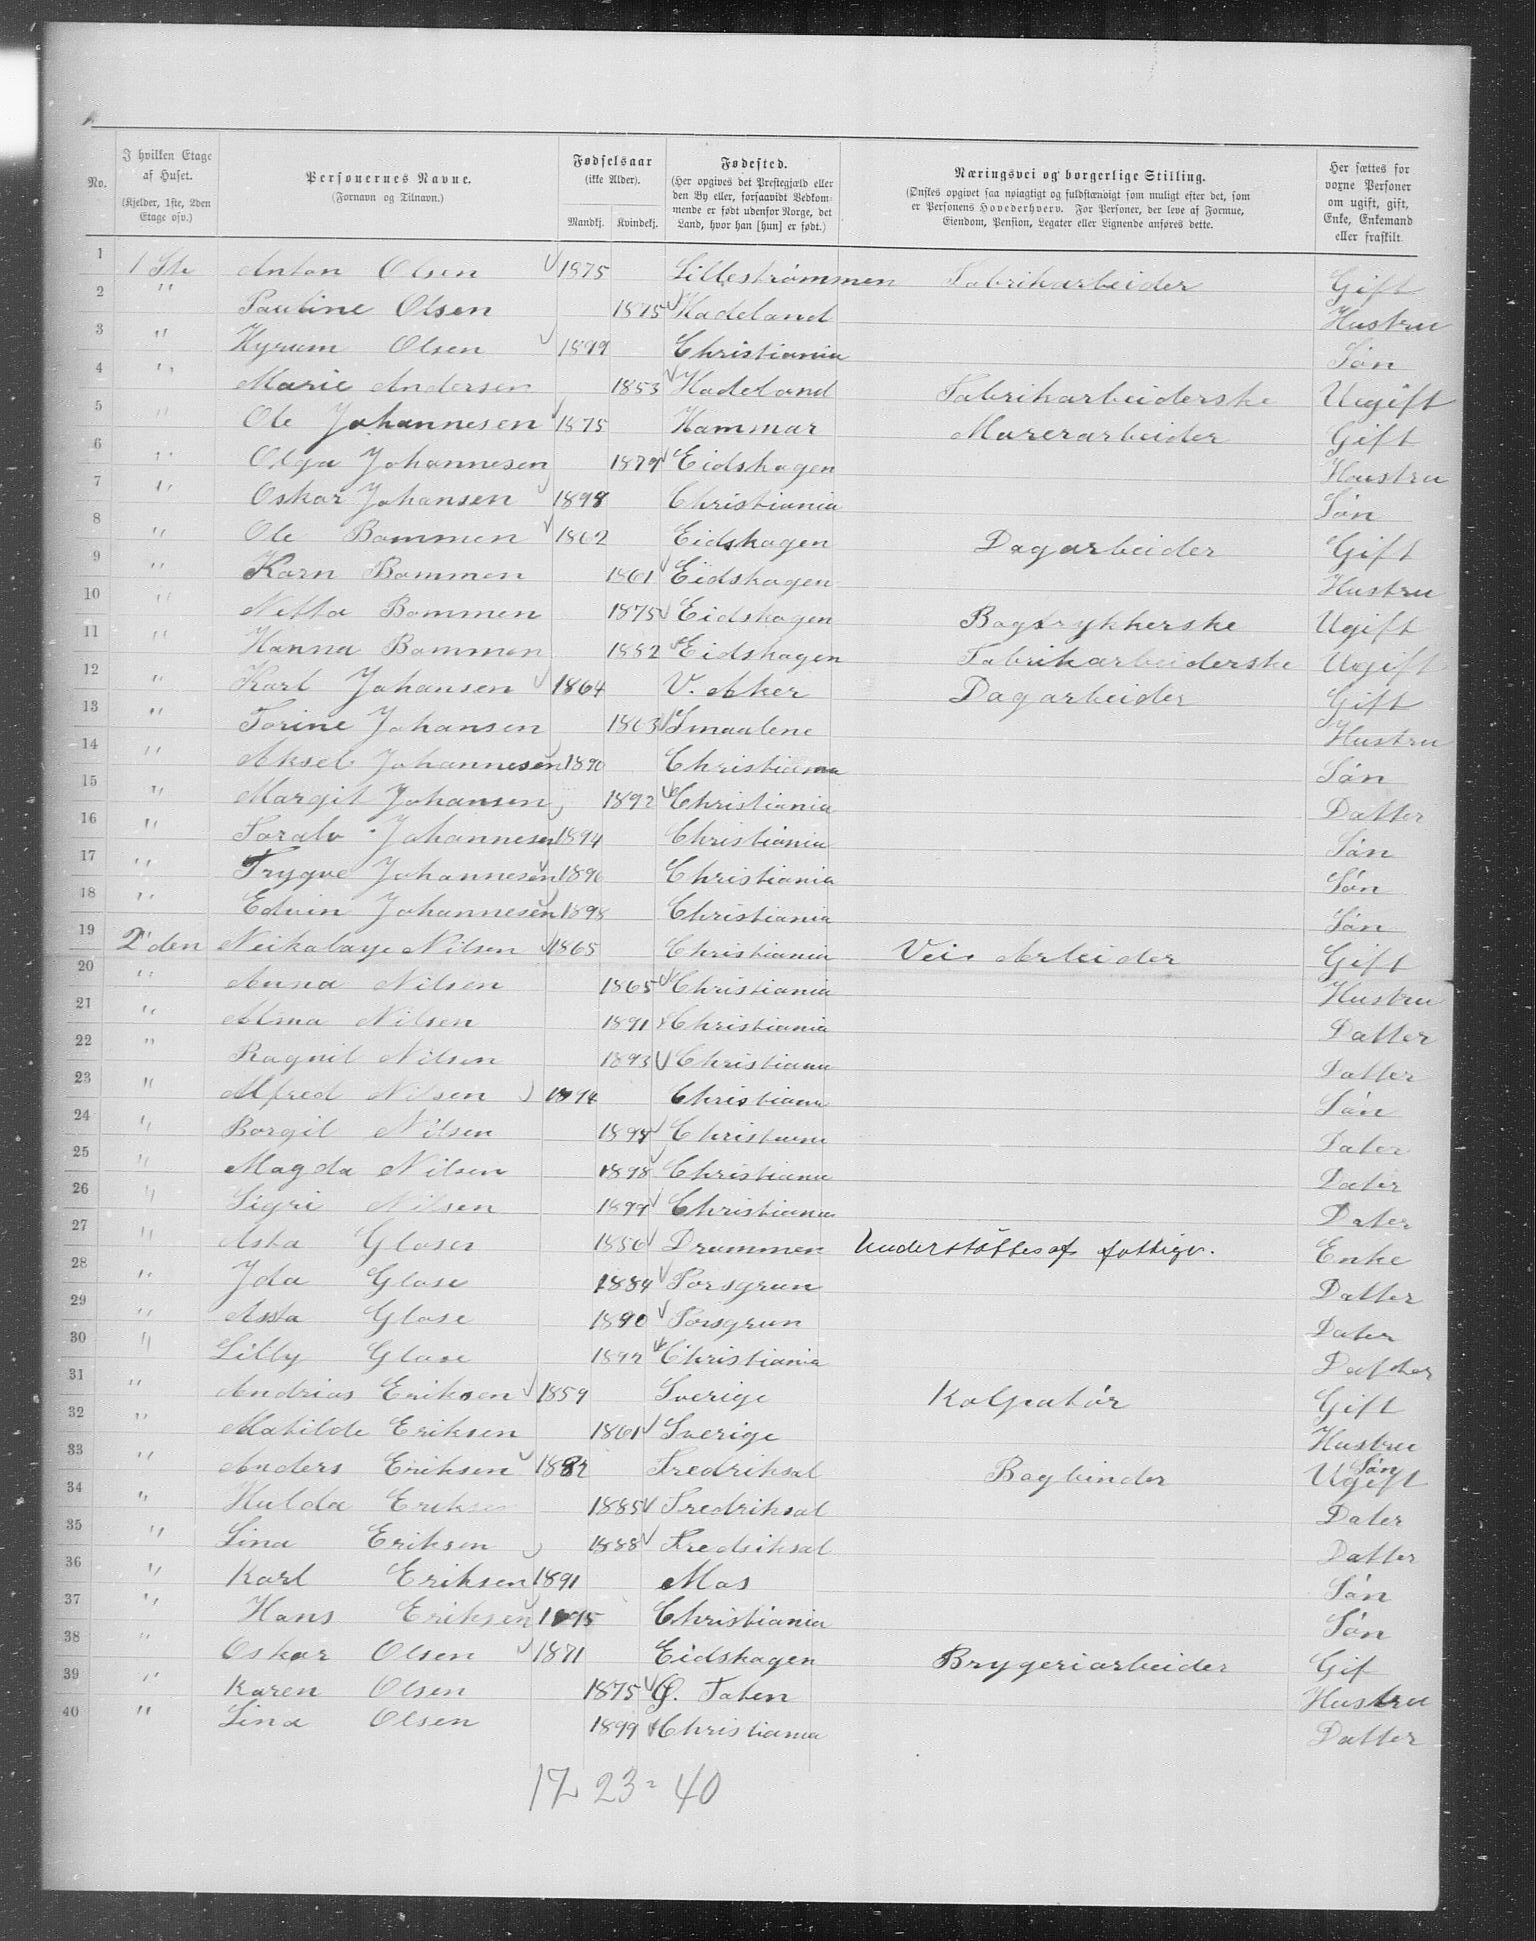 No. | I hvilken Etage af Huset. (Kjelder, 1ste, 2den Etage osv.) | Personernes Navne. (Fornavn og Tilnavn.) | Fødselsaar (ikke Alder). Mandkj. Kvindekj. | Fødested. (Her opgives det Prestegjæld eller den By eller, forsaavidt Vedkommende er født udenfor Norge, det Land, hvor han [hun] er født.) | Næringsvei og borgerlige Stilling. (Ønskes opgivet saa nøiagtigt og fuldstændigt som muligt efter det, som er Personens Hovederhverv. For Personer, der leve af Formue, Eiendom, Pension, Legater eller Lignende anføres dette.) | Her sættes for voxne Personer om ugift, gift, Enke, Enkemand eller fraskilt.
1 1 Ste Anton Olsen 1875 Lillestrømmen Fabrikarbeider Gift
2 " Pauline Olsen 1875 Hadeland Hustru
3 " Hyrum Olsen 1899 Christiania Søn
4 " Marie Andersen 1853 Hadeland Fabrikarbeiderske Uugift
5 " Ole Johannesen 1875 Hammar Murerarbeider Gift
6 " Olga Johannesen 1879 Eidskogen Hustru
7 " Oskar Johansen 1898 Christiania Søn
8 " Ole Bommen 1862 Eidskogen Dagarbeider Gift
9 " Karn Bommen 1861 Eidskogen Hustru
10 " Netta Bommen 1875 Eidskogen Bogtrykkerske Ugift
11 " Hanna Bommen 1882 Eidskogen Fabrikarbeiderske Uugift
12 " Karl Johansen 1864 V. Aker Dagarbeider Gift
13 " Torine Johansen 1863 Smaalene Hustru
14 " Aksel Johannesen 1890 Christiania Søn
15 " Margit Johansen 1892 Christiania Datter
16 " Toralv Johannesen 1894 Christiania Søn
17 " Trygve Johannesen 1896 Christiania Søn
18 " Edvin Johannesen 1898 Christiania Søn
19 2'den Neikolaye Nilsen 1865 Christiania Vei Arbeider Gift
20 " Anna Nilsen 1865 Christiania Hustru
21 " Alma Nilsen 1891 Christiania Datter
22 " Ragnil Nilsen 1893 Christiania Datter
23 " Alfred Nilsen 1894 Christiania Søn
24 " Borgil Nilsen Christiania Dater
25 " Magda Nilsen 1898 Christiania Dater
26 " Sigri Nilsen 1899 Christiania Dater
27 " Asta Glaser 1856 Drammen Understøttes af fattigv. Enke
28 " Jda Glase 1884 Porsgrun Datter
29 " Asta Glase 1890 Porsgrun Dater
30 " Lilly Glase 1892 Christiania Datter
31 " Andrias Eriksen 1859 Sverige Kolportør Gift
32 " Matilde Eriksen 1861 Sverige Hustru
33 " Anders Eriksen 1882 Fredriksal Bogbinder Søn Ugift
34 " Hulda Eriksen 1885 Fredriksal Dater
35 " Lina Eriksen 1888 Fredriksal Datter
36 " Karl Eriksen 1891 Mos Søn
37 " Hans Eriksen 1895 Christiania Søn
38 " Oskar Olsen 1871 Eidskogen Brygeriarbeider Gif
39 " Karen Olsen 1875 Ø. Toten Hustru
40 " Lina Olsen 1899 Christiania Datter
17 23 = 40